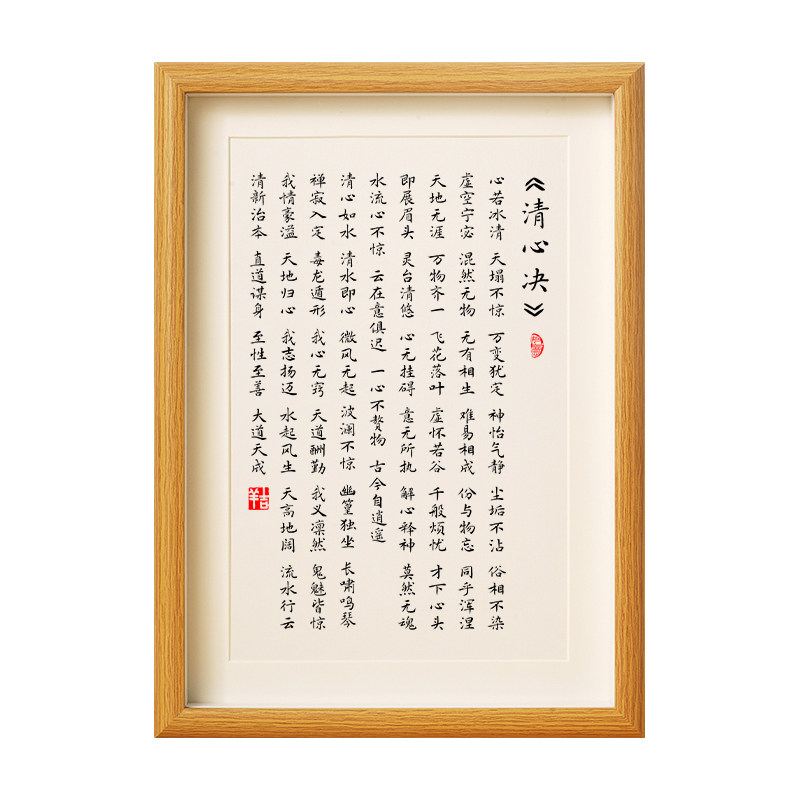 《清心决》
心若冰清 天塌不惊 万变犹定 神怡气静 尘垢不沾 俗相不染
虚空宁宓 混然无物 无有相生 难易相成 份与物忘 同乎浑涅
天地无涯 万物齐一 飞花落叶 虚怀若谷 千般烦忧 才下心头
即展眉头 灵台清悠 心无挂碍 意无所执 解心释神 莫然无魂
水流心不惊 云在意俱迟 一心不赘物 古今自逍遥
清心如水 清水即心 微风无起 波澜不惊 幽篁独坐 长啸鸣琴
禅寂入定 毒龙遁形 我心无窍 天道酬勤 我义凛然 鬼魅皆惊
我情豪溢 天地归心 我志扬迈 水起风生 天高地阔 流水行云
清新治本 直道谋身 至性至善 大道天成